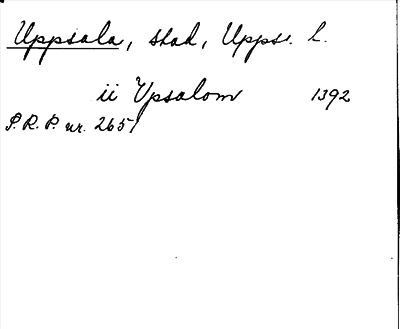 Uppsala, stad, Upps. l.
ii Vpsalom 1392
S.R.P. nr. 2651